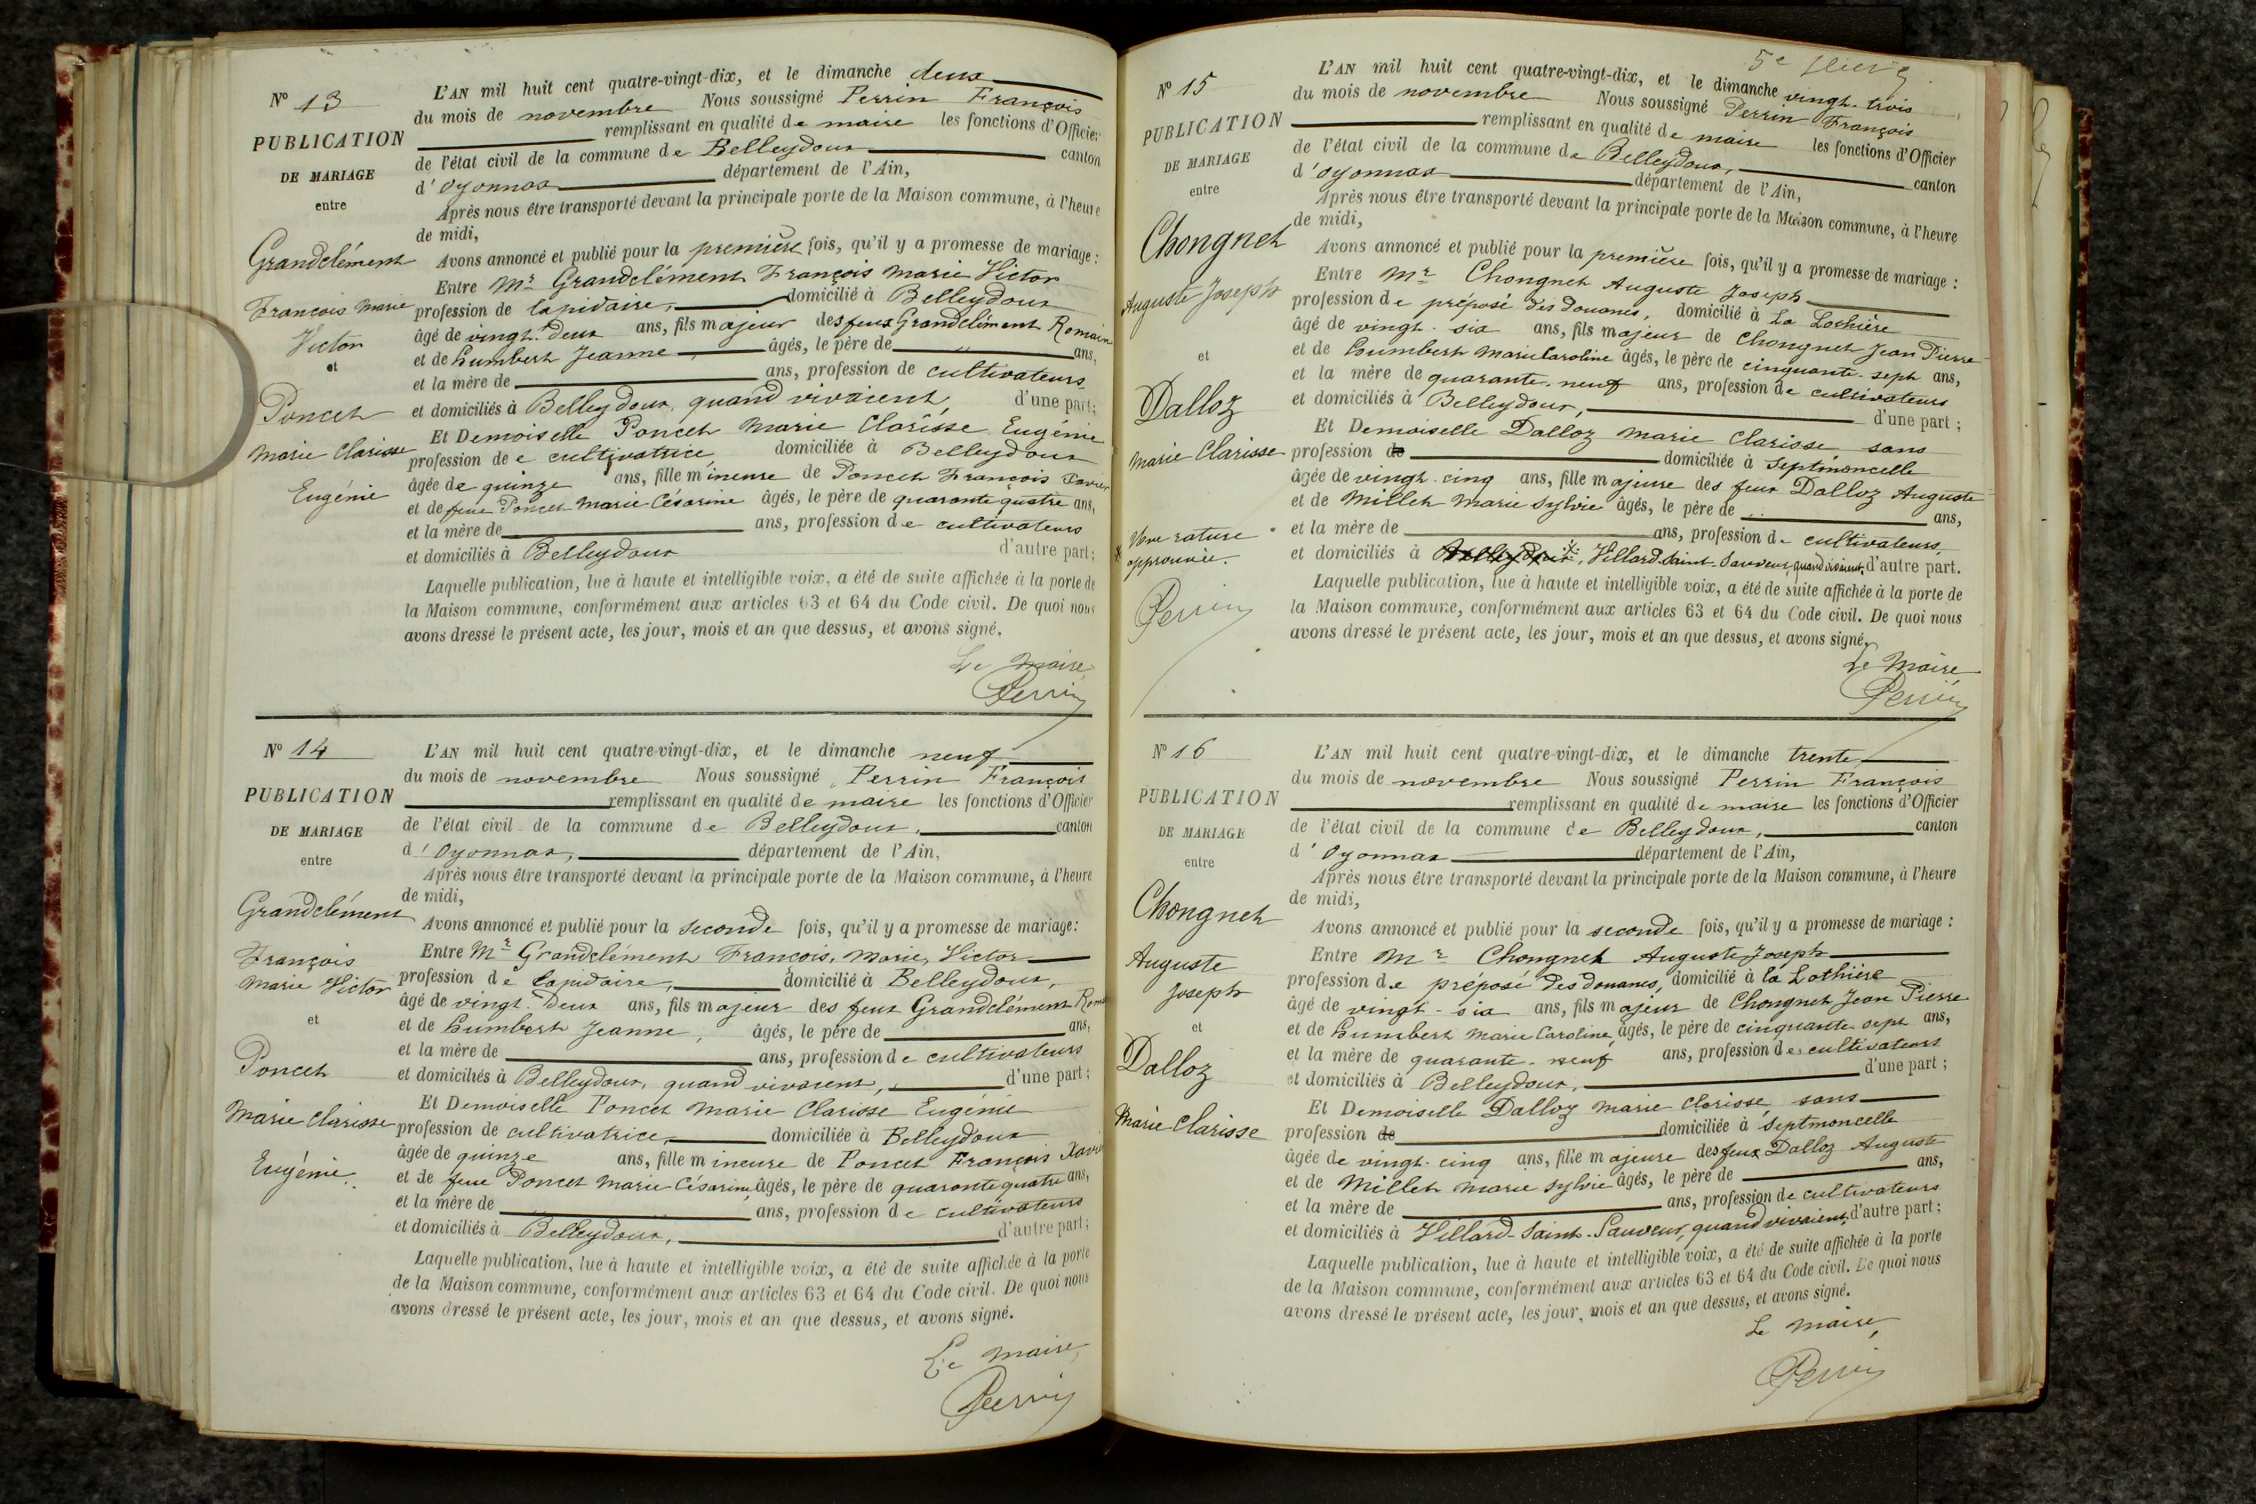 Nº 13
PUBLICATION
DE MARIAGE
entre
Grandclément
François Marie
Victor
et
Poncet
Marie Clarisse
Eugénie
L'AN mil huit cent quatre-vingt-dix, et le dimanche deux
du mois de novembre Nous soussigné Perrin François
remplissant en qualité de maire les fonctions d'Officier
de l'état civil de la commune de Belleydoux canton
d'Oyonnax département de l'Ain,
Après nous être transporté devant la principale porte de la Maison commune, à l'heure
de midi,
Avons annoncé et publié pour la première fois, qu'il y a promesse de mariage :
Entre Mr Grandclément François Marie Victor
profession de lapidaire, domicilié à Belleydoux
âgé de vingt-deux ans, fils majeur des feux Grandclément Romain
et de Humbert Jeanne, âgés, le père de " ans,
et la mère de ans, profession de cultivateurs
et domiciliés à Belleydoux, quand vivaient, d'une part;
Et Demoiselle Poncet Marie Clarisse Eugénie
profession de cultivatrice, domiciliée à Belleydoux
âgée de quinze ans, fille mineure de Poncet François Xavier
et de feue Poncet Marie Césarine âgés, le père de quarante quatre ans,
et la mère de ans, profession de cultivateurs
et domiciliés à Belleydoux d'autre part;
Laquelle publication, lue à haute et intelligible voix, a été de suite affichée à la porte de
la Maison commune, conformément aux articles 63 et 64 du Code civil. De quoi nous
avons dressé le présent acte, les jour, mois et an que dessus, et avons signé.
Le Maire,
Perrin
Nº 14
PUBLICATION
DE MARIAGE
entre
Grandclément
François
Marie Victor
et
Poncet
Marie Clarisse
Eugénie.
L'AN mil huit cent quatre-vingt-dix, et le dimanche neuf
du mois de novembre Nous soussigné Perrin François
remplissant en qualité de maire les fonctions d'Officier
de l'état civil de la commune de Belleydoux, canton
d'Oyonnax, département de l'Ain,
Après nous être transporté devant la principale porte de la Maison commune, à l'heure
de midi,
Avons annoncé et publié pour la seconde fois, qu'il y a promesse de mariage:
Entre Mr Grandclément François, Marie, Victor
profession de lapidaire, domicilié à Belleydoux,
âgé de vingt-deux ans, fils majeur des feux Grandclément
et de Humbert Jeanne, âgés, le père de ans,
et la mère de ans, profession de cultivateurs
et domiciliés à Belleydoux, quand vivaient, d'une part;
Et Demoiselle Poncet Marie Clarisse Eugénie
profession de cultivatrice, domiciliée à Belleydoux
âgée de quinze ans, fille mineure de Poncet François Xavier
et de feue Poncet Marie Césarine, âgés, le père de quarante quatre ans,
et la mère de ans, profession de cultivateurs
et domiciliés à Belleydoux, d'autre part;
Laquelle publication, lue à haute et intelligible voix, a été de suite affichée à la porte
de la Maison commune, conformément aux articles 63 et 64 du Code civil. De quoi nous
avons dressé le présent acte, les jour, mois et an que dessus, et avons signé.
Le Maire,
Perrin
5e
Nº 15
PUBLICATION
DE MARIAGE
entre
Chongnet
Auguste Joseph
et
Dalloz
Marie Clarisse
rature
approuvée.
Perrin
L'AN mil huit cent quatre-vingt-dix, et le dimanche vingt-trois
du mois de novembre Nous soussigné Perrin François
remplissant en qualité de maire les fonctions d'Officier
de l'état civil de la commune de Belleydoux, canton
d'Oyonnax département de l'Ain,
Après nous être transporté devant la principale porte de la Maison commune, à l'heure
de midi,
Avons annoncé et publié pour la première fois, qu'il y a promesse de mariage :
Entre Mr Chongnet Auguste Joseph
profession de préposé des douanes, domicilié à La Lothière
âgé de vingt-six ans, fils majeur de Chongnet Jean Pierre
et de Humbert Marie Caroline âgés, le père de cinquante-sept ans,
et la mère de quarante-neuf ans, profession de cultivateurs
et domiciliés à Belleydoux, d'une part ;
Et Demoiselle Dalloz Marie Clarisse sans
profession de domiciliée à Septmoncelle
âgée de vingt-cinq ans, fille majeure des feux Dalloz Auguste
et de Millet Marie Sylvie âgés, le père de ans,
et la mère de ans, profession de cultivateurs,
et domiciliés à Belleydoux, Villard-Saint-Sauveur, quand vivaient, d'autre part.
Laquelle publication, lue à haute et intelligible voix, a été de suite affichée à la porte de
la Maison commune, conformément aux articles 63 et 64 du Code civil. De quoi nous
avons dressé le présent acte, les jour, mois et an que dessus, et avons signé,
Le Maire
Perrin
Nº 16
PUBLICATION
DE MARIAGE
entre
Chongnet
Auguste
Joseph
et
Dalloz
Marie Clarisse
L'AN mil huit cent quatre-vingt-dix, et le dimanche trente
du mois de novembre Nous soussigné Perrin François
remplissant en qualité de maire les fonctions d'Officier
de l'état civil de la commune de Belleydoux, canton
d'Oyonnax département de l'Ain,
Après nous être transporté devant la principale porte de la Maison commune, à l'heure
de midi,
Avons annoncé et publié pour la seconde fois, qu'il y a promesse de mariage :
Entre Mr Chongnet Auguste Joseph
profession de préposé des douanes, domicilié à la Lothière
âgé de vingt-six ans, fils majeur de Chongnet Jean Pierre
et de Humbert Marie Caroline, âgés, le père de cinquante-sept ans,
et la mère de quarante-neuf ans, profession de cultivateurs
et domiciliés à Belleydoux, d'une part ;
Et Demoiselle Dalloz Marie Clarisse, sans
profession de domiciliée à Septmoncelle
âgée de vingt-cinq ans, fille majeure des feux Dalloz Auguste
et de Millet Marie Sylvie âgés, le père de ans,
et la mère de ans, profession de cultivateurs
et domiciliés à Villard-Saint-Sauveur, quand vivaient, d'autre part ;
Laquelle publication, lue à haute et intelligible voix, a été de suite affichée à la porte
de la Maison commune, conformément aux articles 63 et 64 du Code civil. De quoi nous
avons dressé le présent acte, les jour, mois et an que dessus, et avons signé.
Le Maire,
Perrin